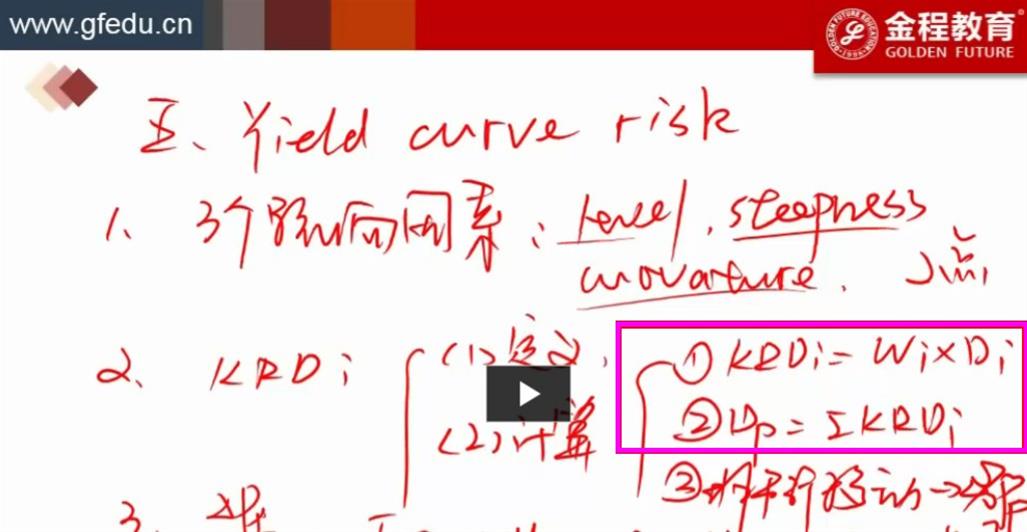 www.gfedu.cn
金程教育
GOLDEN FUTURE
五、Yield curve risk
1. 3个影响因素：level, steepness
curvature.
2. KRDi (1)定义, ① KRDi = Wi×Di
(2)计算 ② Dp = ΣKRDi
③
3.